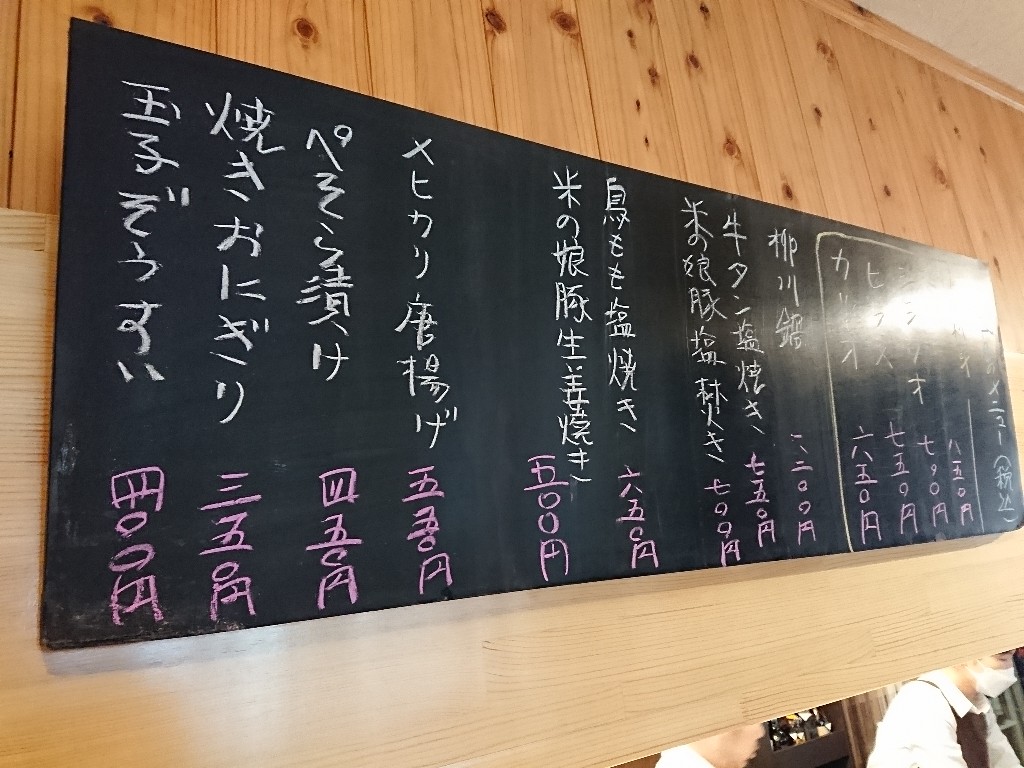 メニュー（税込）
八五〇円
七九〇円
ヒラス 七五〇円
カツオ 六五〇円
柳川鍋
牛タン塩焼き 七五〇円
米の娘豚塩焼き 七〇〇円
鳥もも塩焼き 六五〇円
米の娘豚生姜焼き 五〇〇円
メヒカリ唐揚げ 五五〇円
ぺそら漬け 四五〇円
焼きおにぎり 三五〇円
玉子ぞうすい 四〇〇円